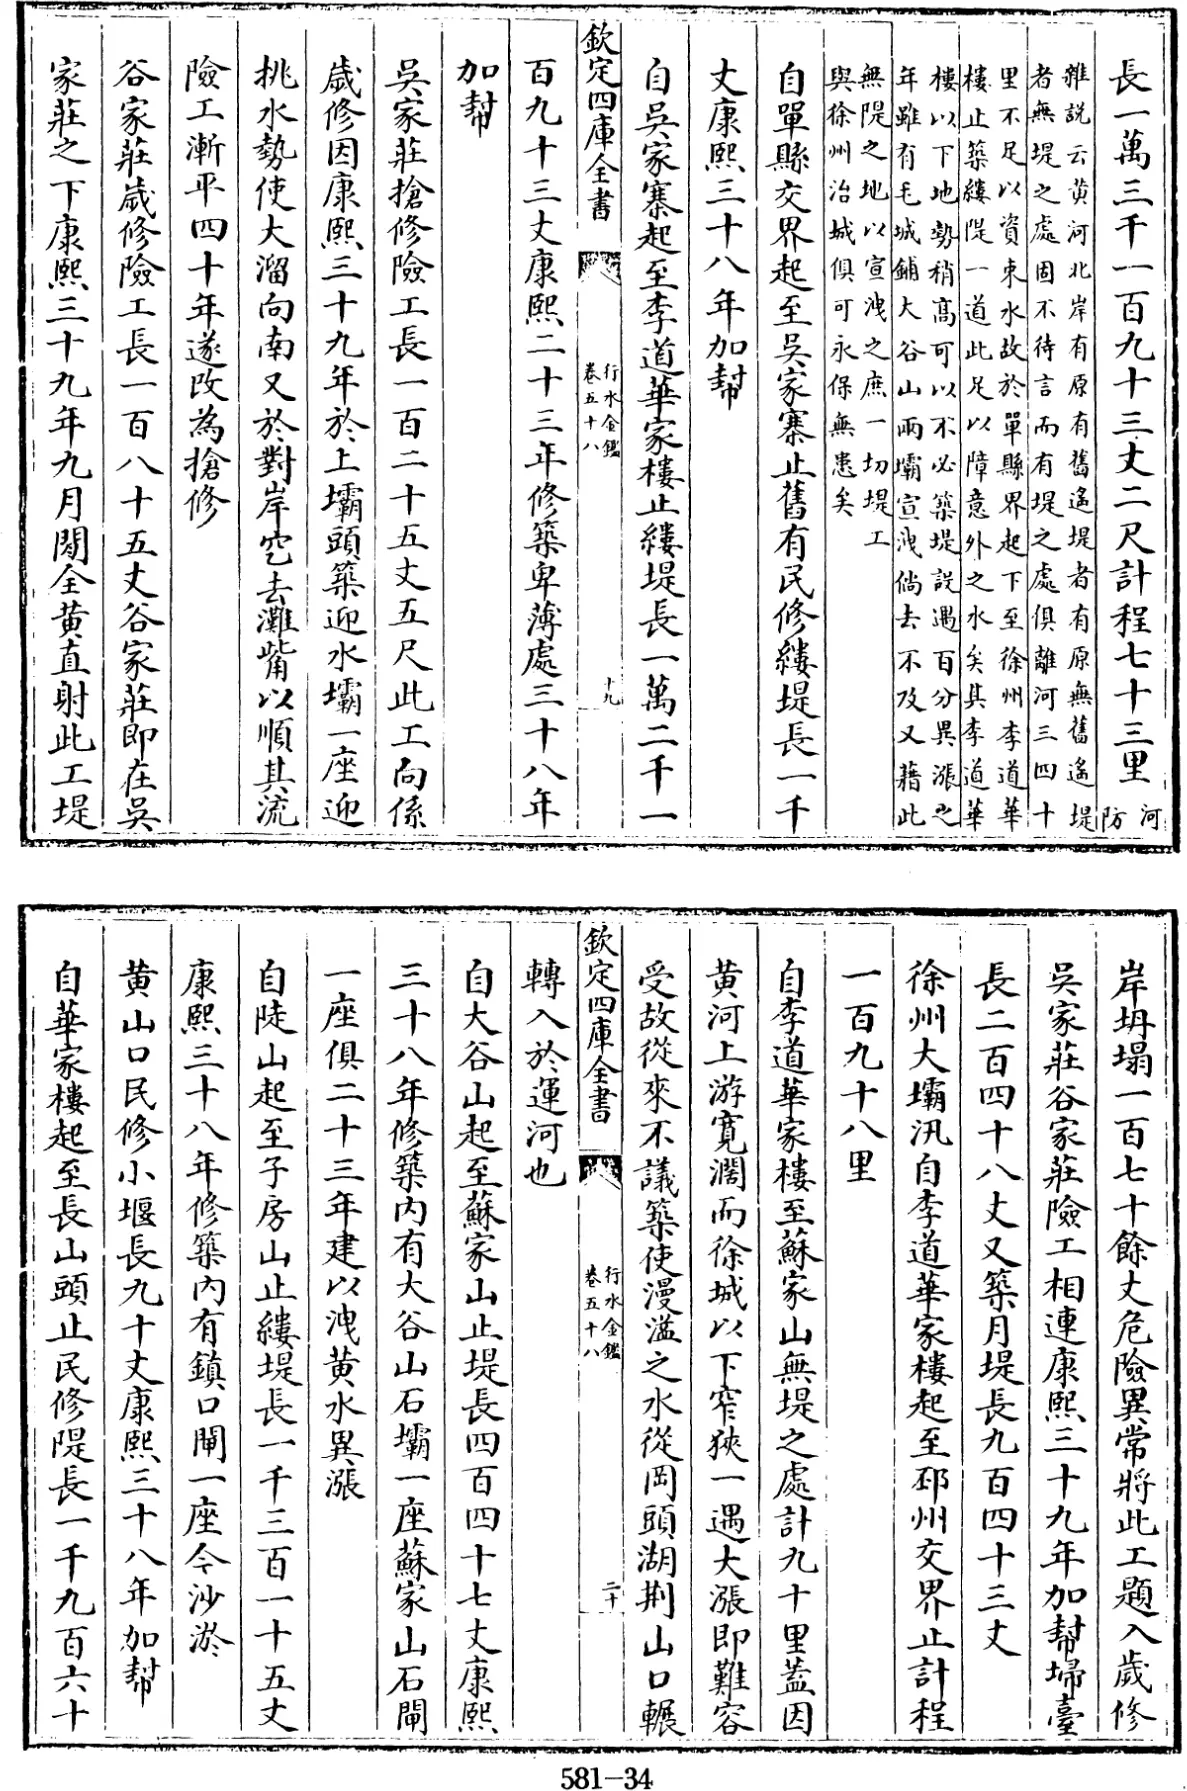 長一萬三千一百九十三丈二尺計程七十三里河防
雜說云黄河北岸有原有舊遙堤者有原無舊遙堤
者無堤之處固不待言而有堤之處俱離河三四十
里不足以資束水故於單縣界起下至徐州李道華
樓止築縷隄一道此足以障意外之水矣其李道華
樓以下地勢稍高可以不必築堤設遇百分異漲之
年雖有毛城鋪大谷山兩壩宣洩倘去不及又藉此
無隄之地以宣洩之庶一切堤工
與徐州治城俱可永保無患矣
自單縣交界起至吳家寨止舊有民修縷堤長一千
丈康熙三十八年加幇
自吳家寨起至李道華家樓止縷堤長一萬二千一
欽定四庫全書
行水金鑑
卷五十八
十九
百九十三丈康熙二十三年修築卑薄處三十八年
加幇
吳家莊搶修險工長一百二十五丈五尺此工向係
歳修因康熙三十九年於上壩頭築迎水壩一座迎
挑水勢使大溜向南又於對岸挖去灘嘴以順其流
險工漸平四十年遂改為搶修
谷家莊歳修險工長一百八十五丈谷家莊即在吳
家莊之下康熙三十九年九月間全黄直射此工堤
岸坍塌一百七十餘丈危險異常將此工題入歳修
吳家莊谷家莊險工相連康熙三十九年加幇埽臺
長二百四十八丈又築月堤長九百四十三丈
徐州大壩汛自李道華家樓起至邳州交界止計程
一百九十八里
自李道華家樓至蘇家山無堤之處計九十里葢因
黄河上游寛濶而徐城以下窄狹一遇大漲即難容
受故從來不議築使漫溢之水從岡頭湖荆山口輾
欽定四庫全書
行水金鑑
卷五十八
二十
轉入於運河也
自大谷山起至蘇家山止堤長四百四十七丈康熙
三十八年修築内有大谷山石壩一座蘇家山石閘
一座俱二十三年建以洩黄水異漲
自陡山起至子房山止縷堤長一千三百一十五丈
康熙三十八年修築内有鎮口閘一座今沙淤
黄山口民修小堰長九十丈康熙三十八年加幇
自華家樓起至長山頭止民修隄長一千九百六十
581-34